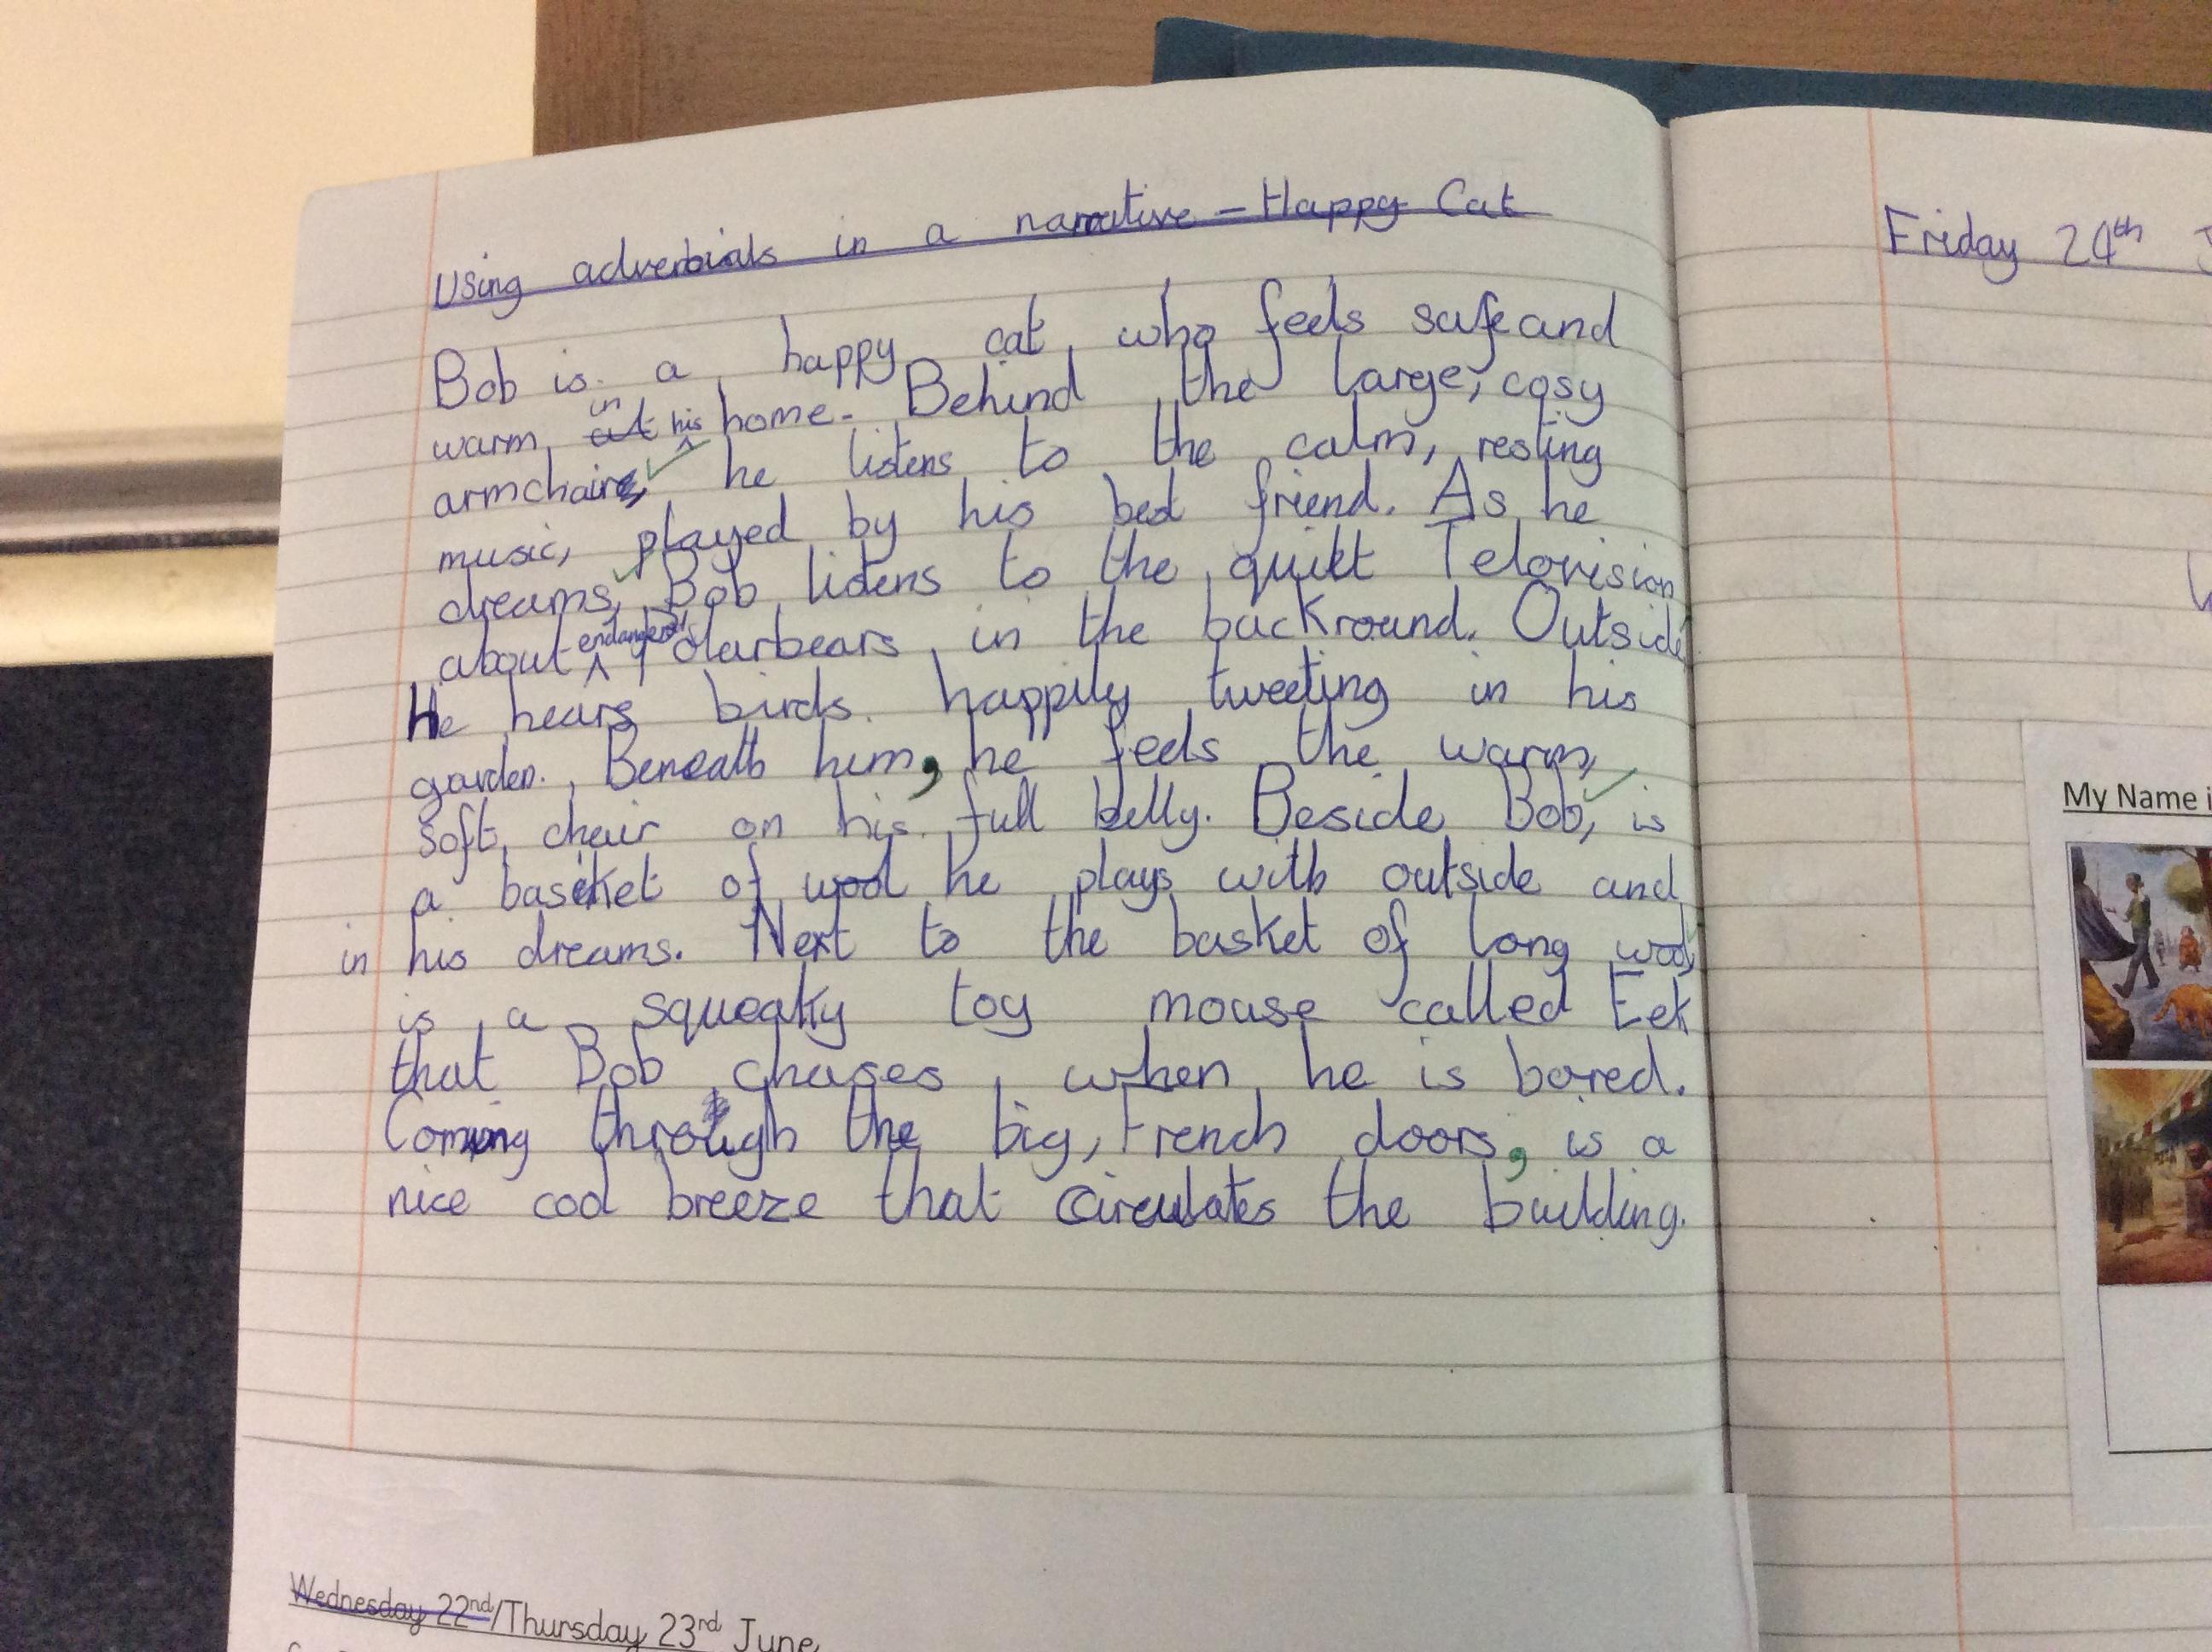 Using adverbials in a narrative - Happy Cat
Bob is a happy cat who feels safe and
warm at in his home. Behind the large, cosy
armchair, he listens to the calm, resting
music, played by his best friend. As he
dreams, Bob listens to the quiet Telovision
about endangered polarbears in the backround. Outside
He hears birds happily tweeting in his
garden. Beneath him, he feels the warm,
soft chair on his full belly. Beside Bob, is
a basket of wool he plays with outside and
in his dreams. Next to the basket of long wool,
is a squeaky toy mouse called Eek
that Bob chases when he is bored.
Coming through the big, French doors, is a
nice cool breeze that circulates the building.
Wednesday 22nd/Thursday 23rd June
Friday 24th J
My Name i